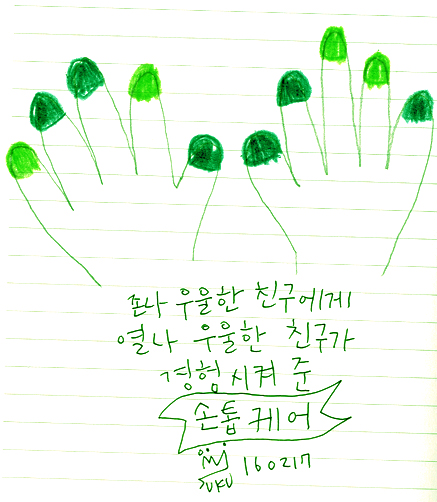 존나 우울한 친구에게
열나 우울한 친구가
경험시켜 준
손톱 케어
160217